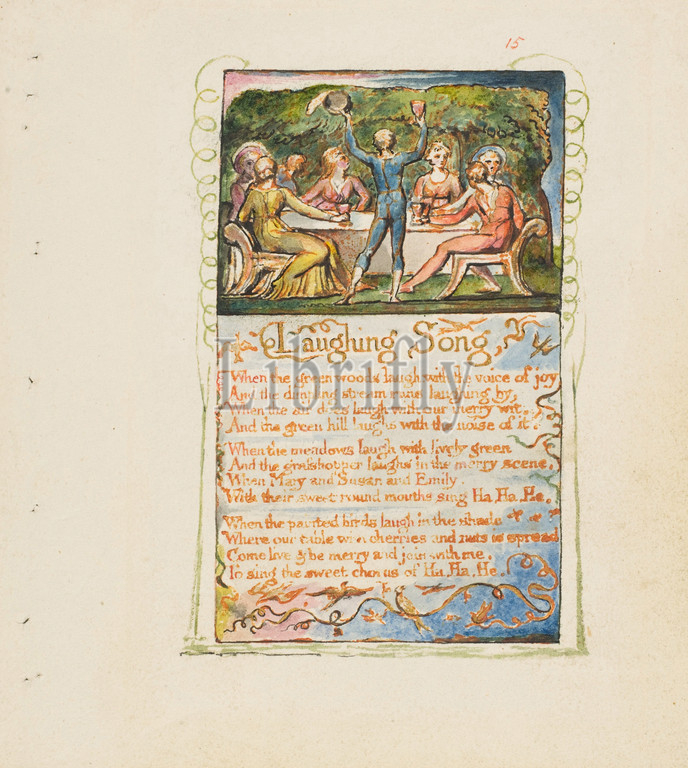 15
Laughing Song,
When the green woods laugh with the voice of joy
And the dimpling stream runs laughing by,
When the air does laugh with our merry wit,
And the green hill laughs with the noise of it.
When the meadows laugh with lively green
And the grasshopper laughs in the merry scene,
When Mary and Susan and Emily,
With their sweet round mouths sing Ha, Ha, He.
When the painted birds laugh in the shade
Where our table with cherries and nuts is spread
Come live & be merry and join with me,
To sing the sweet chorus of Ha, Ha, He.
Librifly